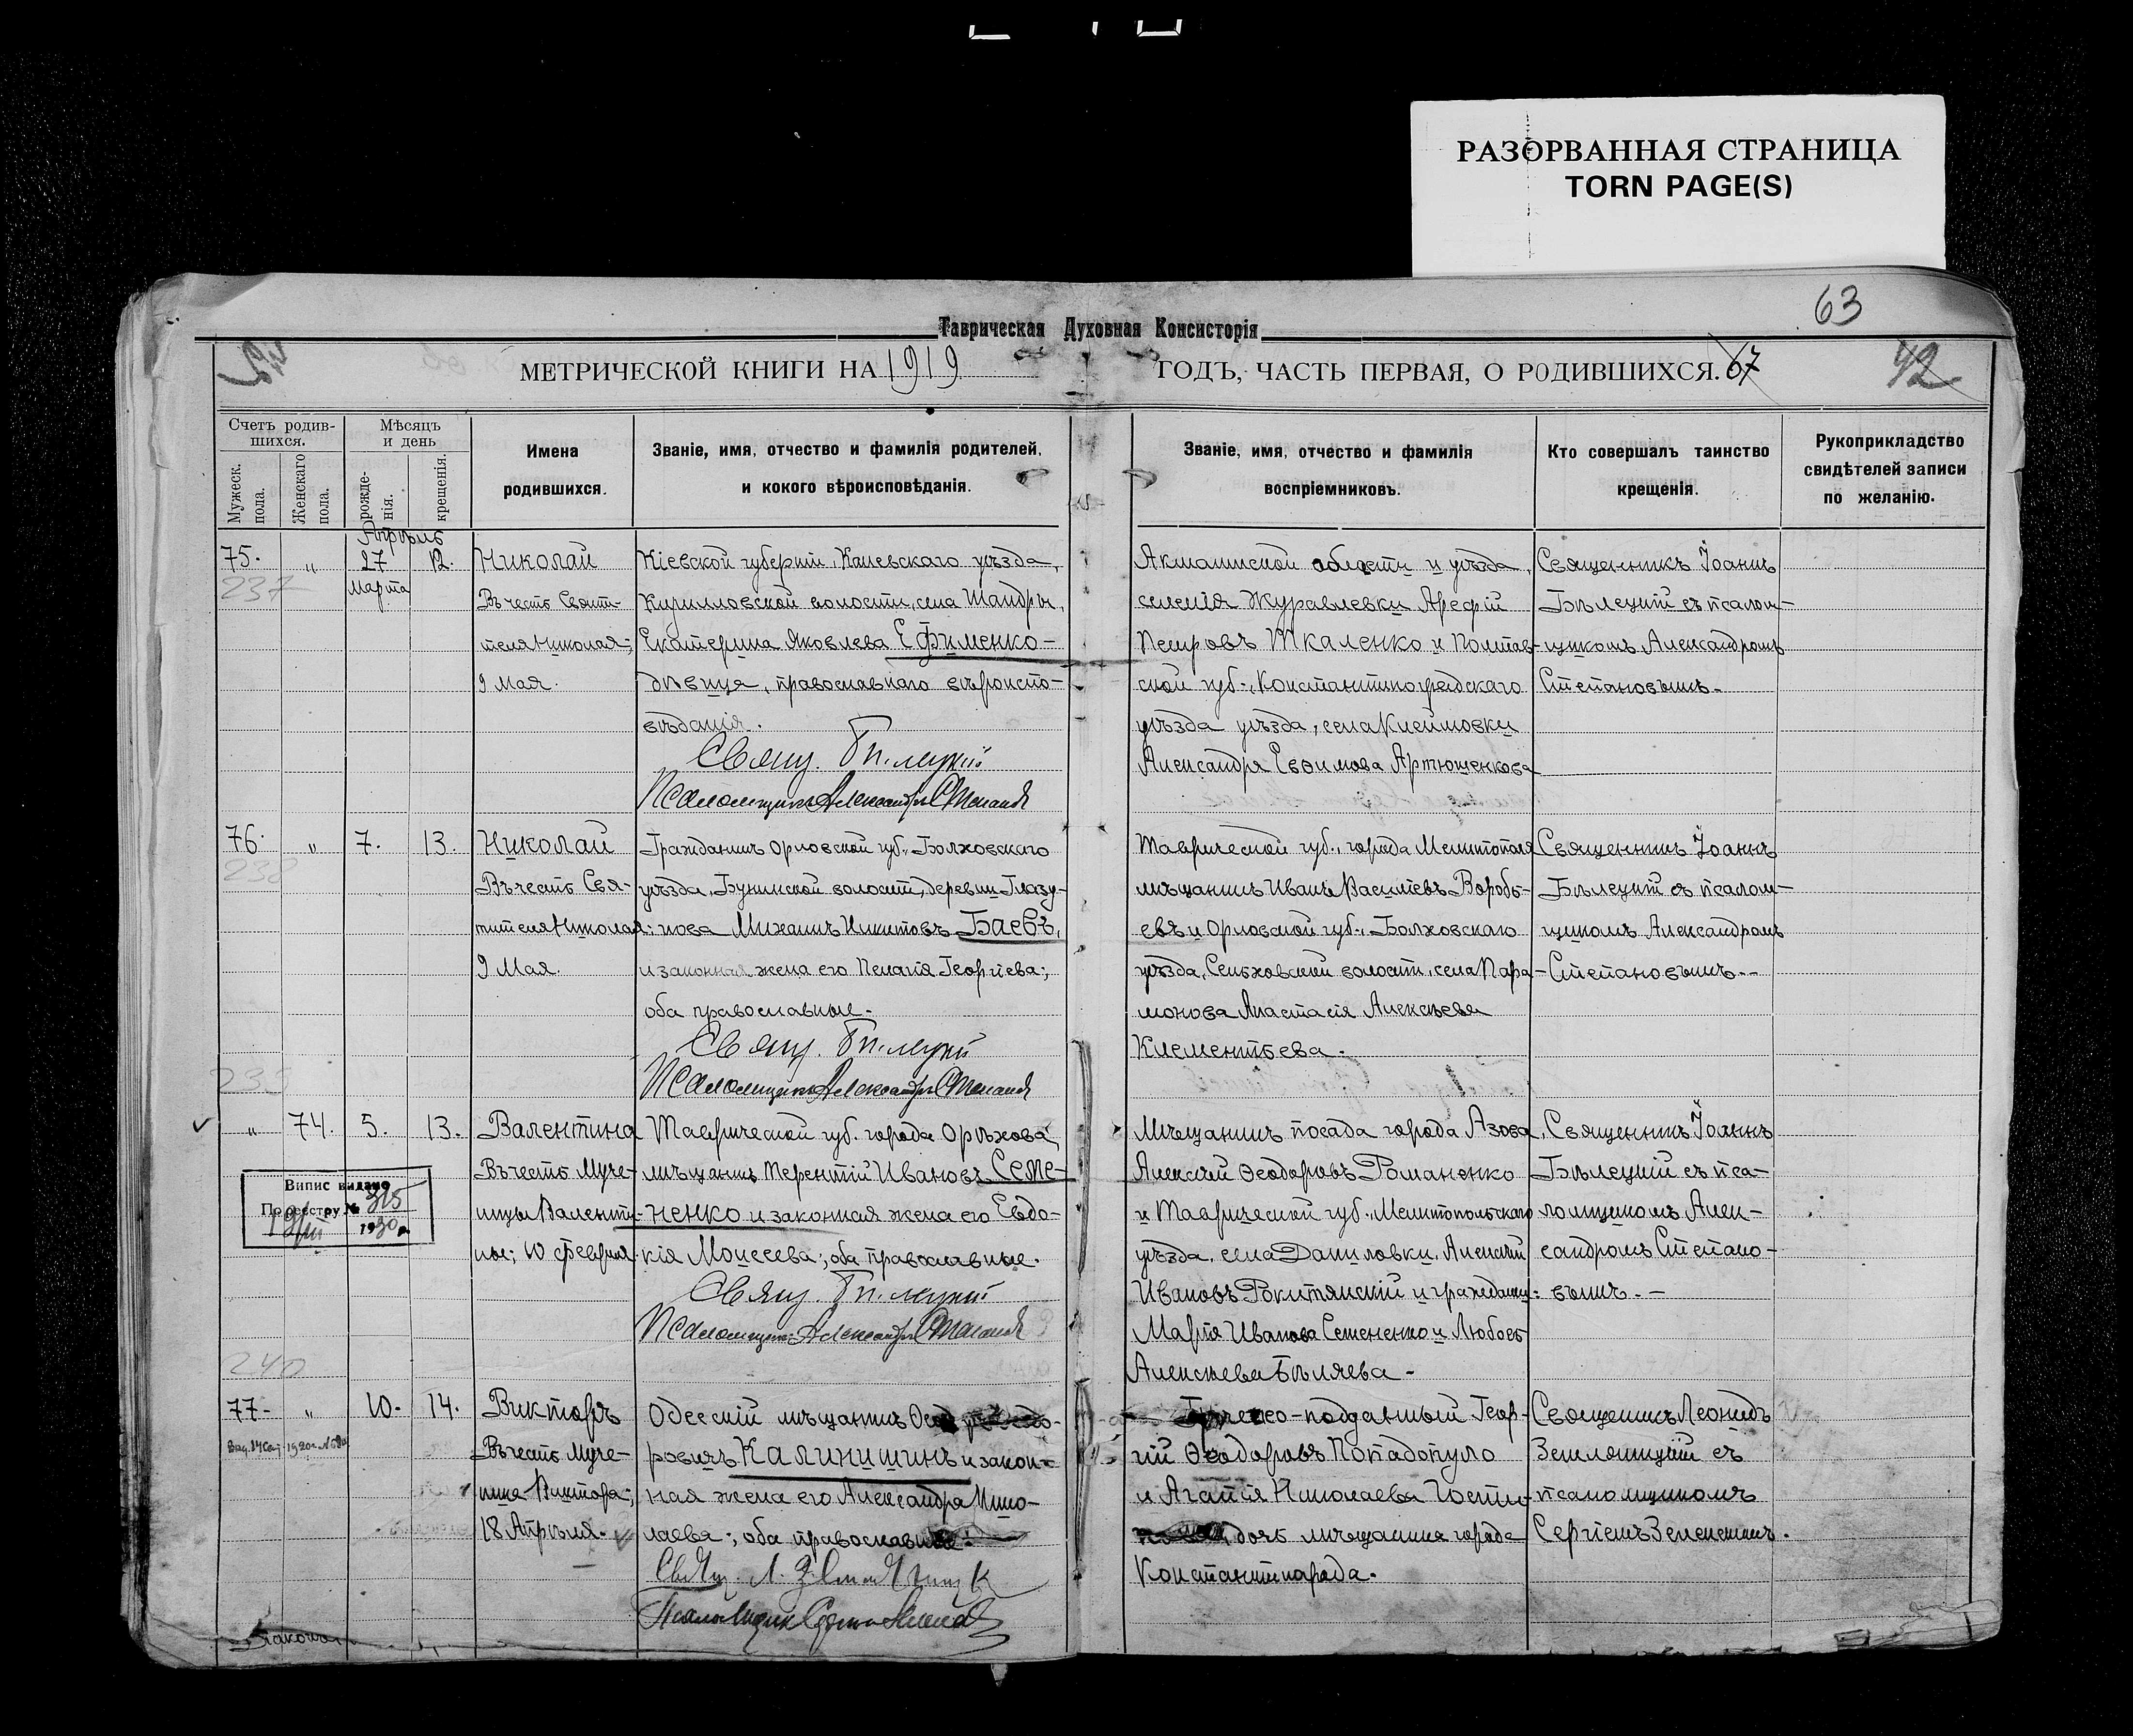 РАЗОРВАННАЯ СТРАНИЦА
TORN PAGE(S)
63
Таврическая Духовная Консисторія
МЕТРИЧЕСКОЙ КНИГИ НА 1919
ГОДЪ, ЧАСТЬ ПЕРВАЯ, О РОДИВШИХСЯ. 67
42
Счетъ родив-
шихся.
Мужеск. пола.
Женскаго пола.
Мѣсяцъ
и день
рожде-
нія.
крещенія.
Имена
родившихся.
Званіе, имя, отчество и фамилія родителей,
и кокого вѣроисповѣданія.
Званіе, имя, отчество и фамилія
воспріемниковъ.
Кто совершалъ таинство
крещенія.
Рукоприкладство
свидѣтелей записи
по желанію.
Апрѣль
75. „ 27 12.
237
Марта
Николай
Въ честь Святи-
теля Николая;
9 Мая.
Кіевской губерніи, Каневскаго уѣзда,
Кирилловской волости, села Шандры,
Екатерина Яковлева Ефименко-
дѣвица, православнаго вѣроиспо-
вѣданія.
Свящ. Бѣлецкій
Псаломщикъ Александръ Степановъ
Акмолинской области и уѣзда,
селенія Журавлевки Арефій
Петровъ Ткаленко и Полтав-
ской губ., Константиноградскаго
уѣзда уѣзда, села Климовки
Александра Евѳимова Артюшенкова
Священникъ Іоаннъ
Бѣлецкій съ псалом-
щикомъ Александромъ
Степановымъ.
76. „ 7. 13.
238
Николай
Въ честь Свя-
тителя Николая;
9 Мая.
Гражданинъ Орловской губ., Болховскаго
уѣзда, Бунинской волости, деревни Глазу-
нова Михаилъ Никитовъ Баевъ,
и законная жена его Пелагія Георгіева;
оба православные.
Свящ. Бѣлецкій
Псаломщикъ Александръ Степановъ
Таврической губ., города Мелитополя
мѣщанинъ Иванъ Васильевъ Воробь-
евъ и Орловской губ., Болховскаго
уѣзда, Сельховской волости, села Пара-
монова Анастасія Алексѣева
Клементьева.
Священникъ Іоаннъ
Бѣлецкій съ псалом-
щикомъ Александромъ
Степановымъ.
239
„ 74. 5. 13.
Валентина
Въ честь Муче-
ницы Валенти-
ны; 10 феврал.
Випис видано
По реєстру № 315
1930 р.
Таврической губ. города Орѣхова,
мѣщанинъ Терентій Ивановъ Семе-
ненко и законная жена его Евдо-
кія Моисеева; оба православные.
Свящ. Бѣлецкій
Псаломщикъ Александръ Степановъ
Мѣщанинъ посада города Азова,
Алексій Ѳеодоровъ Романенко
и Таврической губ., Мелитопольскаго
уѣзда, села Даниловки, Алексій
Ивановъ Рокитянскій и гражданки:
Марія Иванова Семененко и Любовь
Алексѣева Бѣляева-
Священникъ Іоаннъ
Бѣлецкій съ пса-
ломщикомъ Алек-
сандромъ Степано-
вымъ.
240
77- „ 10. 14.
Викторъ
Въ честь Муче-
ника Виктора;
18 Апрѣля.
Одесскій мѣщанинъ
ровичъ Калинишинъ и закон-
ная жена его Александра Нико-
лаева; оба православные.
Греческо-подданный Геор-
гій Ѳеодоровъ Попадопуло
и Агапія Николаева
дочь мѣщанина города
Константинграда.
Священникъ Леонидъ
съ
псаломщикомъ
Сергіемъ